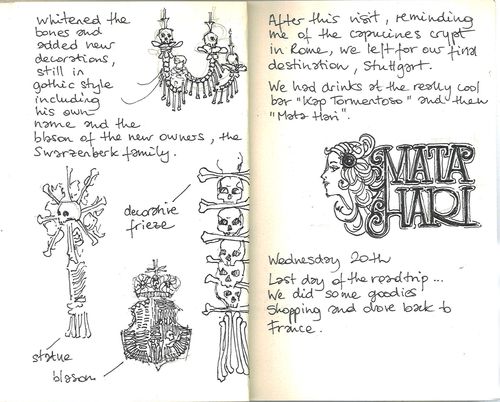 whitened the
bones and
added new
decorations,
still in
gothic style
including
his own
name and the
blason of the new owners, the
Swarzenberk family.
decorative
frieze
statue
blason
After this visit, reminding
me of the capucines crypt
in Rome, we left for our final
destination, Stuttgart.
We had drinks at the really cool
bar "Kap Tormentoso" and then
"Mata Hari".
MATA
HARI
Wednesday 20th
Last day of the roadtrip...
We did some goodies
shopping and drove back to
France.